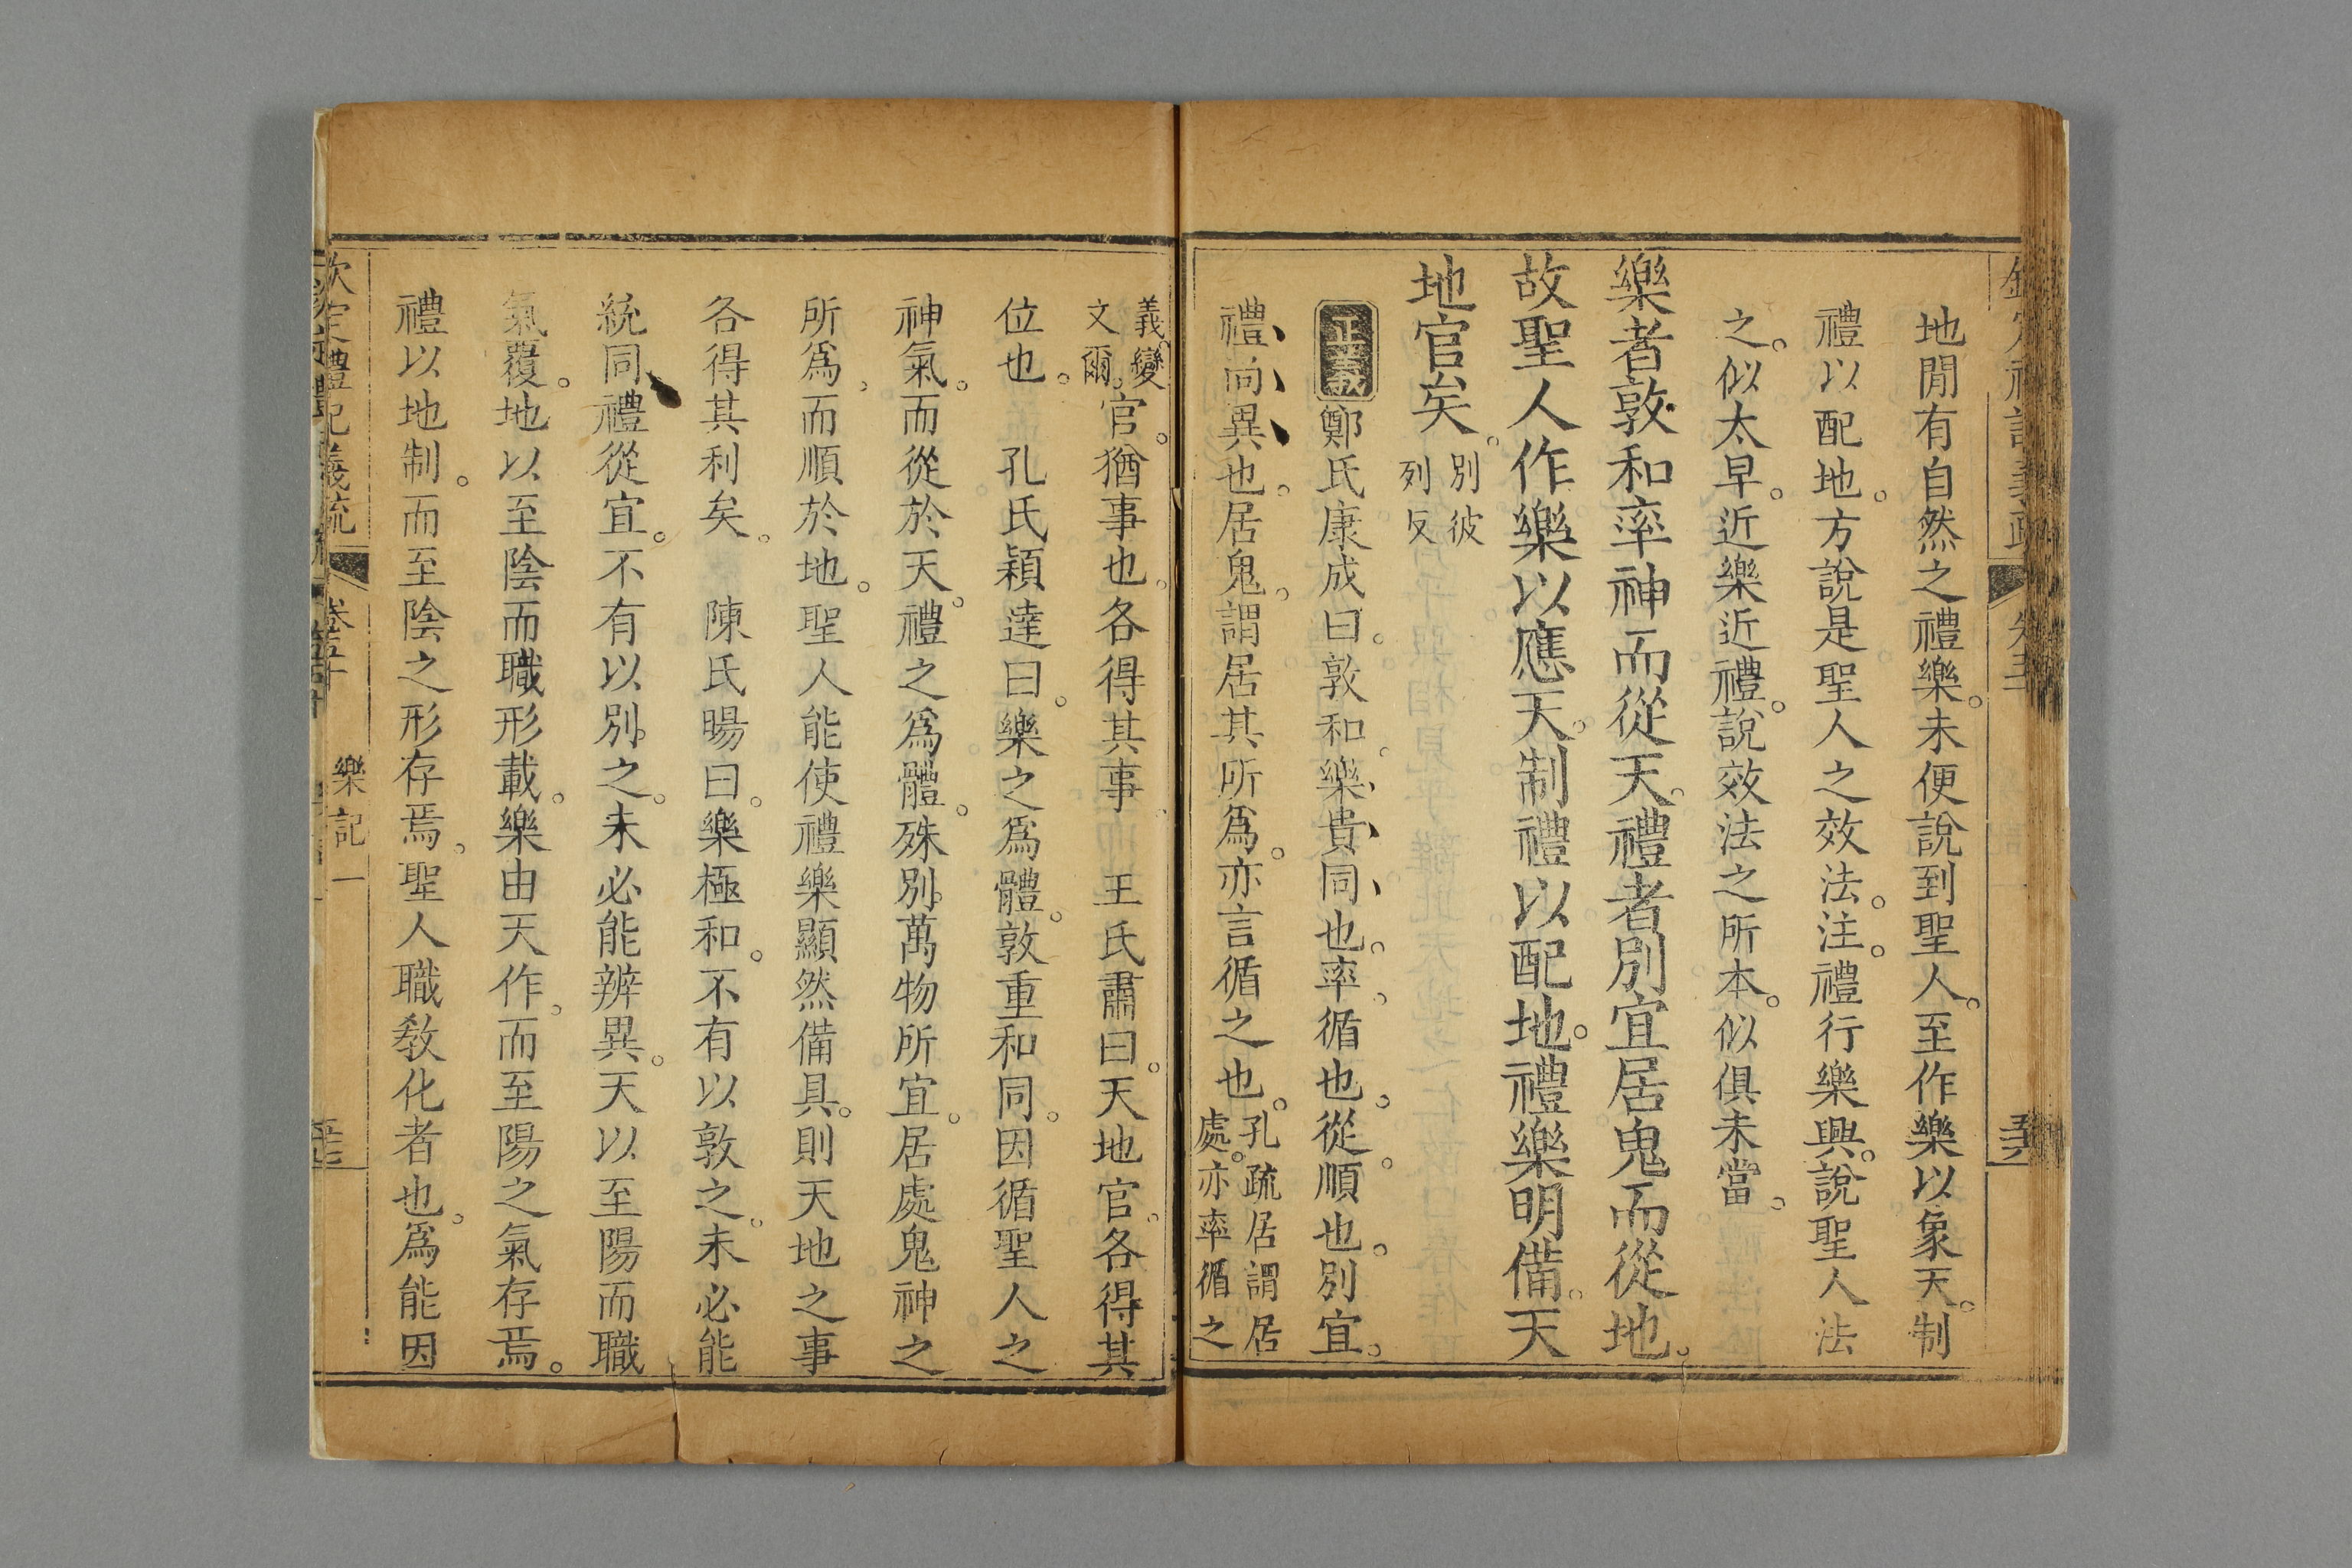 地閒有自然之禮樂。未便說到聖人。至作樂以象天。制
禮以配地。方說是聖人之效法。注。禮行樂興。說聖人法
之。似太早。近樂近禮。說效法之所本。似俱未當。
樂者敦和率神而從天。禮者別宜居鬼而從地。
故聖人作樂以應天。制禮以配地。禮樂明備。天
地官矣。別彼
列反
正義鄭氏康成曰。敦和。樂貴同也。率。循也。從。順也。別宜。
禮尚異也。居鬼。謂居其所爲。亦言循之也。孔疏居謂居
處。亦率循之
義。變
文爾。官。猶事也。各得其事 王氏肅曰。天地官。各得其
位也。 孔氏穎達曰。樂之爲體。敦重和同。因循聖人之
神氣。而從於天。禮之爲體。殊別萬物所宜。居處鬼神之
所爲。而順於地。聖人能使禮樂顯然備具。則天地之事
各得其利矣。 陳氏暘曰。樂極和。不有以敦之。未必能
統同。禮從宜。不有以別之。未必能辨異。天以至陽而職
氣覆。地以至陰而職形載。樂由天作。而至陽之氣存焉。
禮以地制。而至陰之形存焉。聖人職敎化者也。爲能因
欽定禮記義疏 樂記一